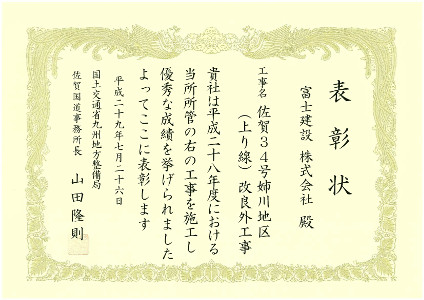 表彰状
富士建設 株式会社 殿
工事名 佐賀34号姉川地区
(上り線) 改良外工事
貴社は平成二十八年度における
当所所管の右の工事を施工し
優秀な成績を挙げられました
よってここに表彰します
平成二十九年七月二十六日
国土交通省九州地方整備局
佐賀国道事務所長 山田隆則